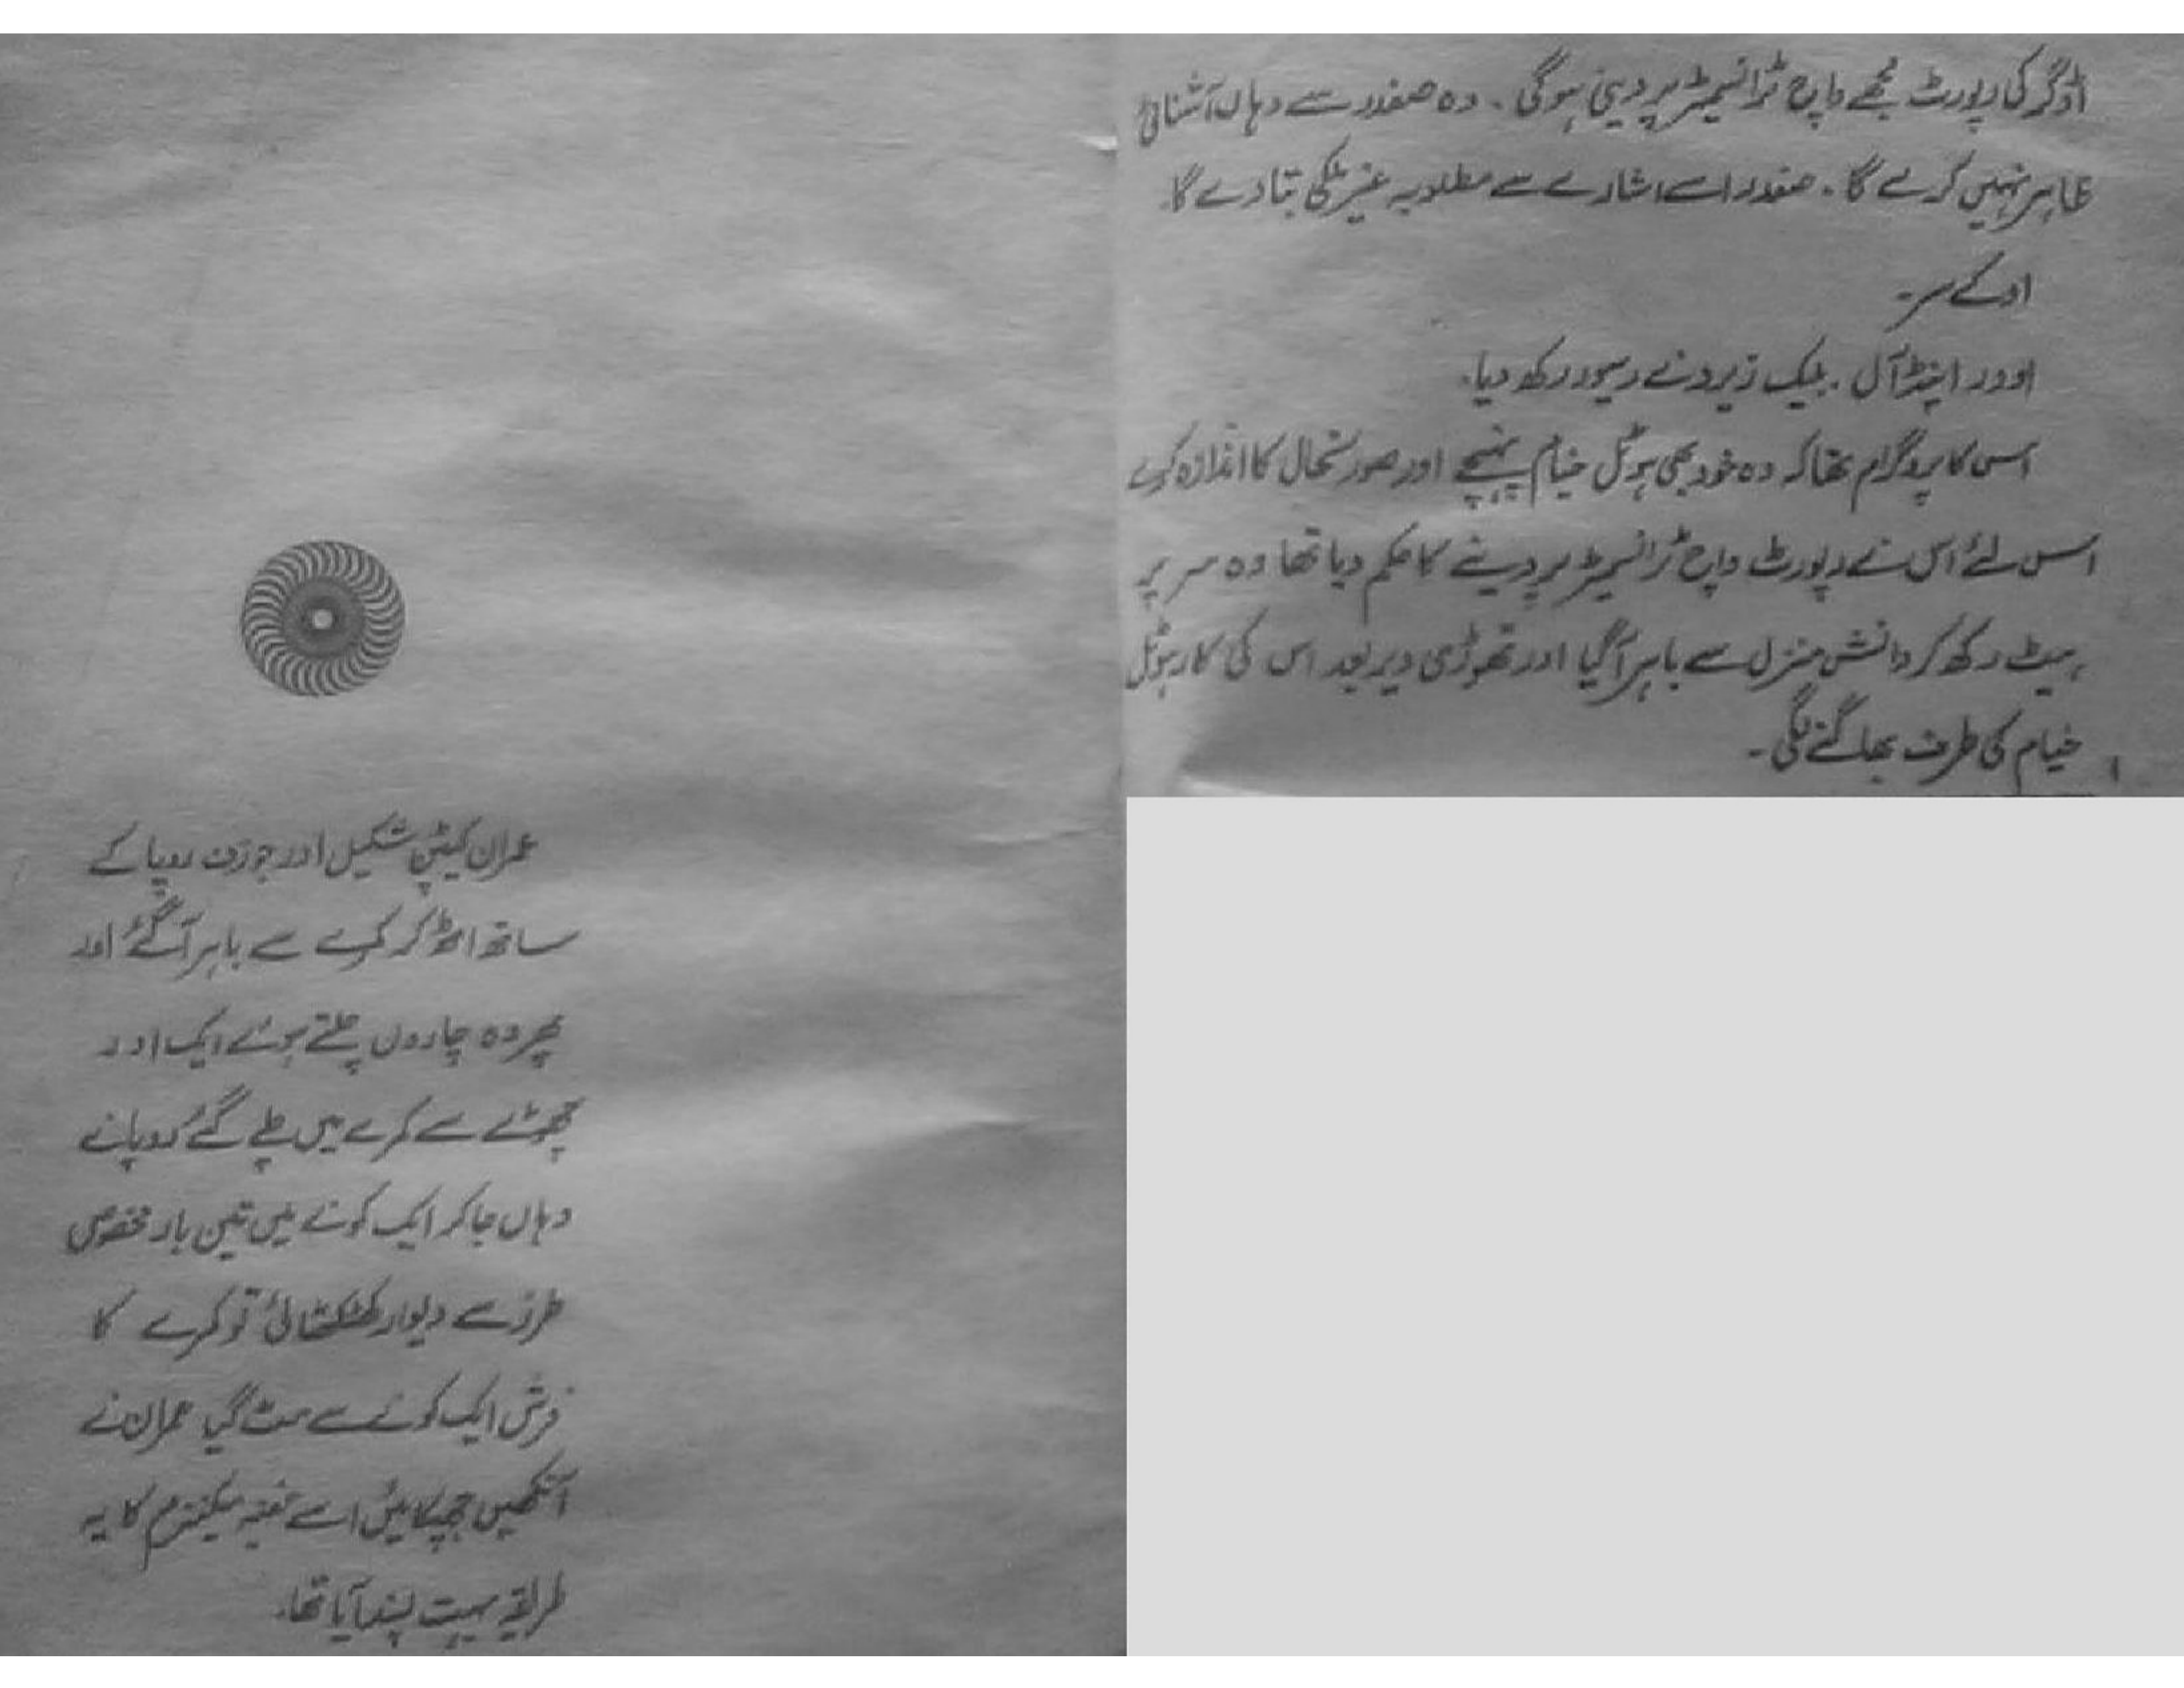 اوگر کی رپورٹ مجھے واچ ٹرانسمیٹر پر دینی ہوگی ۔ وہ صفدر سے وہاں آشنائی
ظاہر نہیں کرے گا ۔ صفدر اسے اشارے سے مطلوبہ غیر ملکی بتا دے گا۔
اوکے سر ۔
اوور اینڈ آل ۔ بلیک زیرو نے رسیور رکھ دیا۔
اس کا پروگرام تھا کہ وہ خود بھی ہوٹل خیام پہنچے اور صورتحال کا اندازہ کرے
اس لئے اس نے رپورٹ واچ ٹرانسمیٹر پر دینے کا حکم دیا تھا وہ سر پر
ہیٹ رکھ کر دانش منزل سے باہر آ گیا اور تھوڑی دیر بعد اس کی کار ہوٹل
خیام کی طرف بھاگنے لگی ۔
عمران کیپٹن شکیل اور جوزف روپا کے
ساتھ اٹھ کر کمرے سے باہر آ گئے اور
پھر وہ چاروں چلتے ہوئے ایک اور
چھوٹے سے کمرے میں چلے گئے روپا نے
وہاں جا کر ایک کونے میں تین بار مخصوص
طرز سے دیوار کھٹکھٹائی تو کمرے کا
فرش ایک کونے سے ہٹ گیا عمران نے
آنکھیں جھپکائیں اسے خفیہ میکنزم کا یہ
طریقہ بہت پسند آیا تھا۔